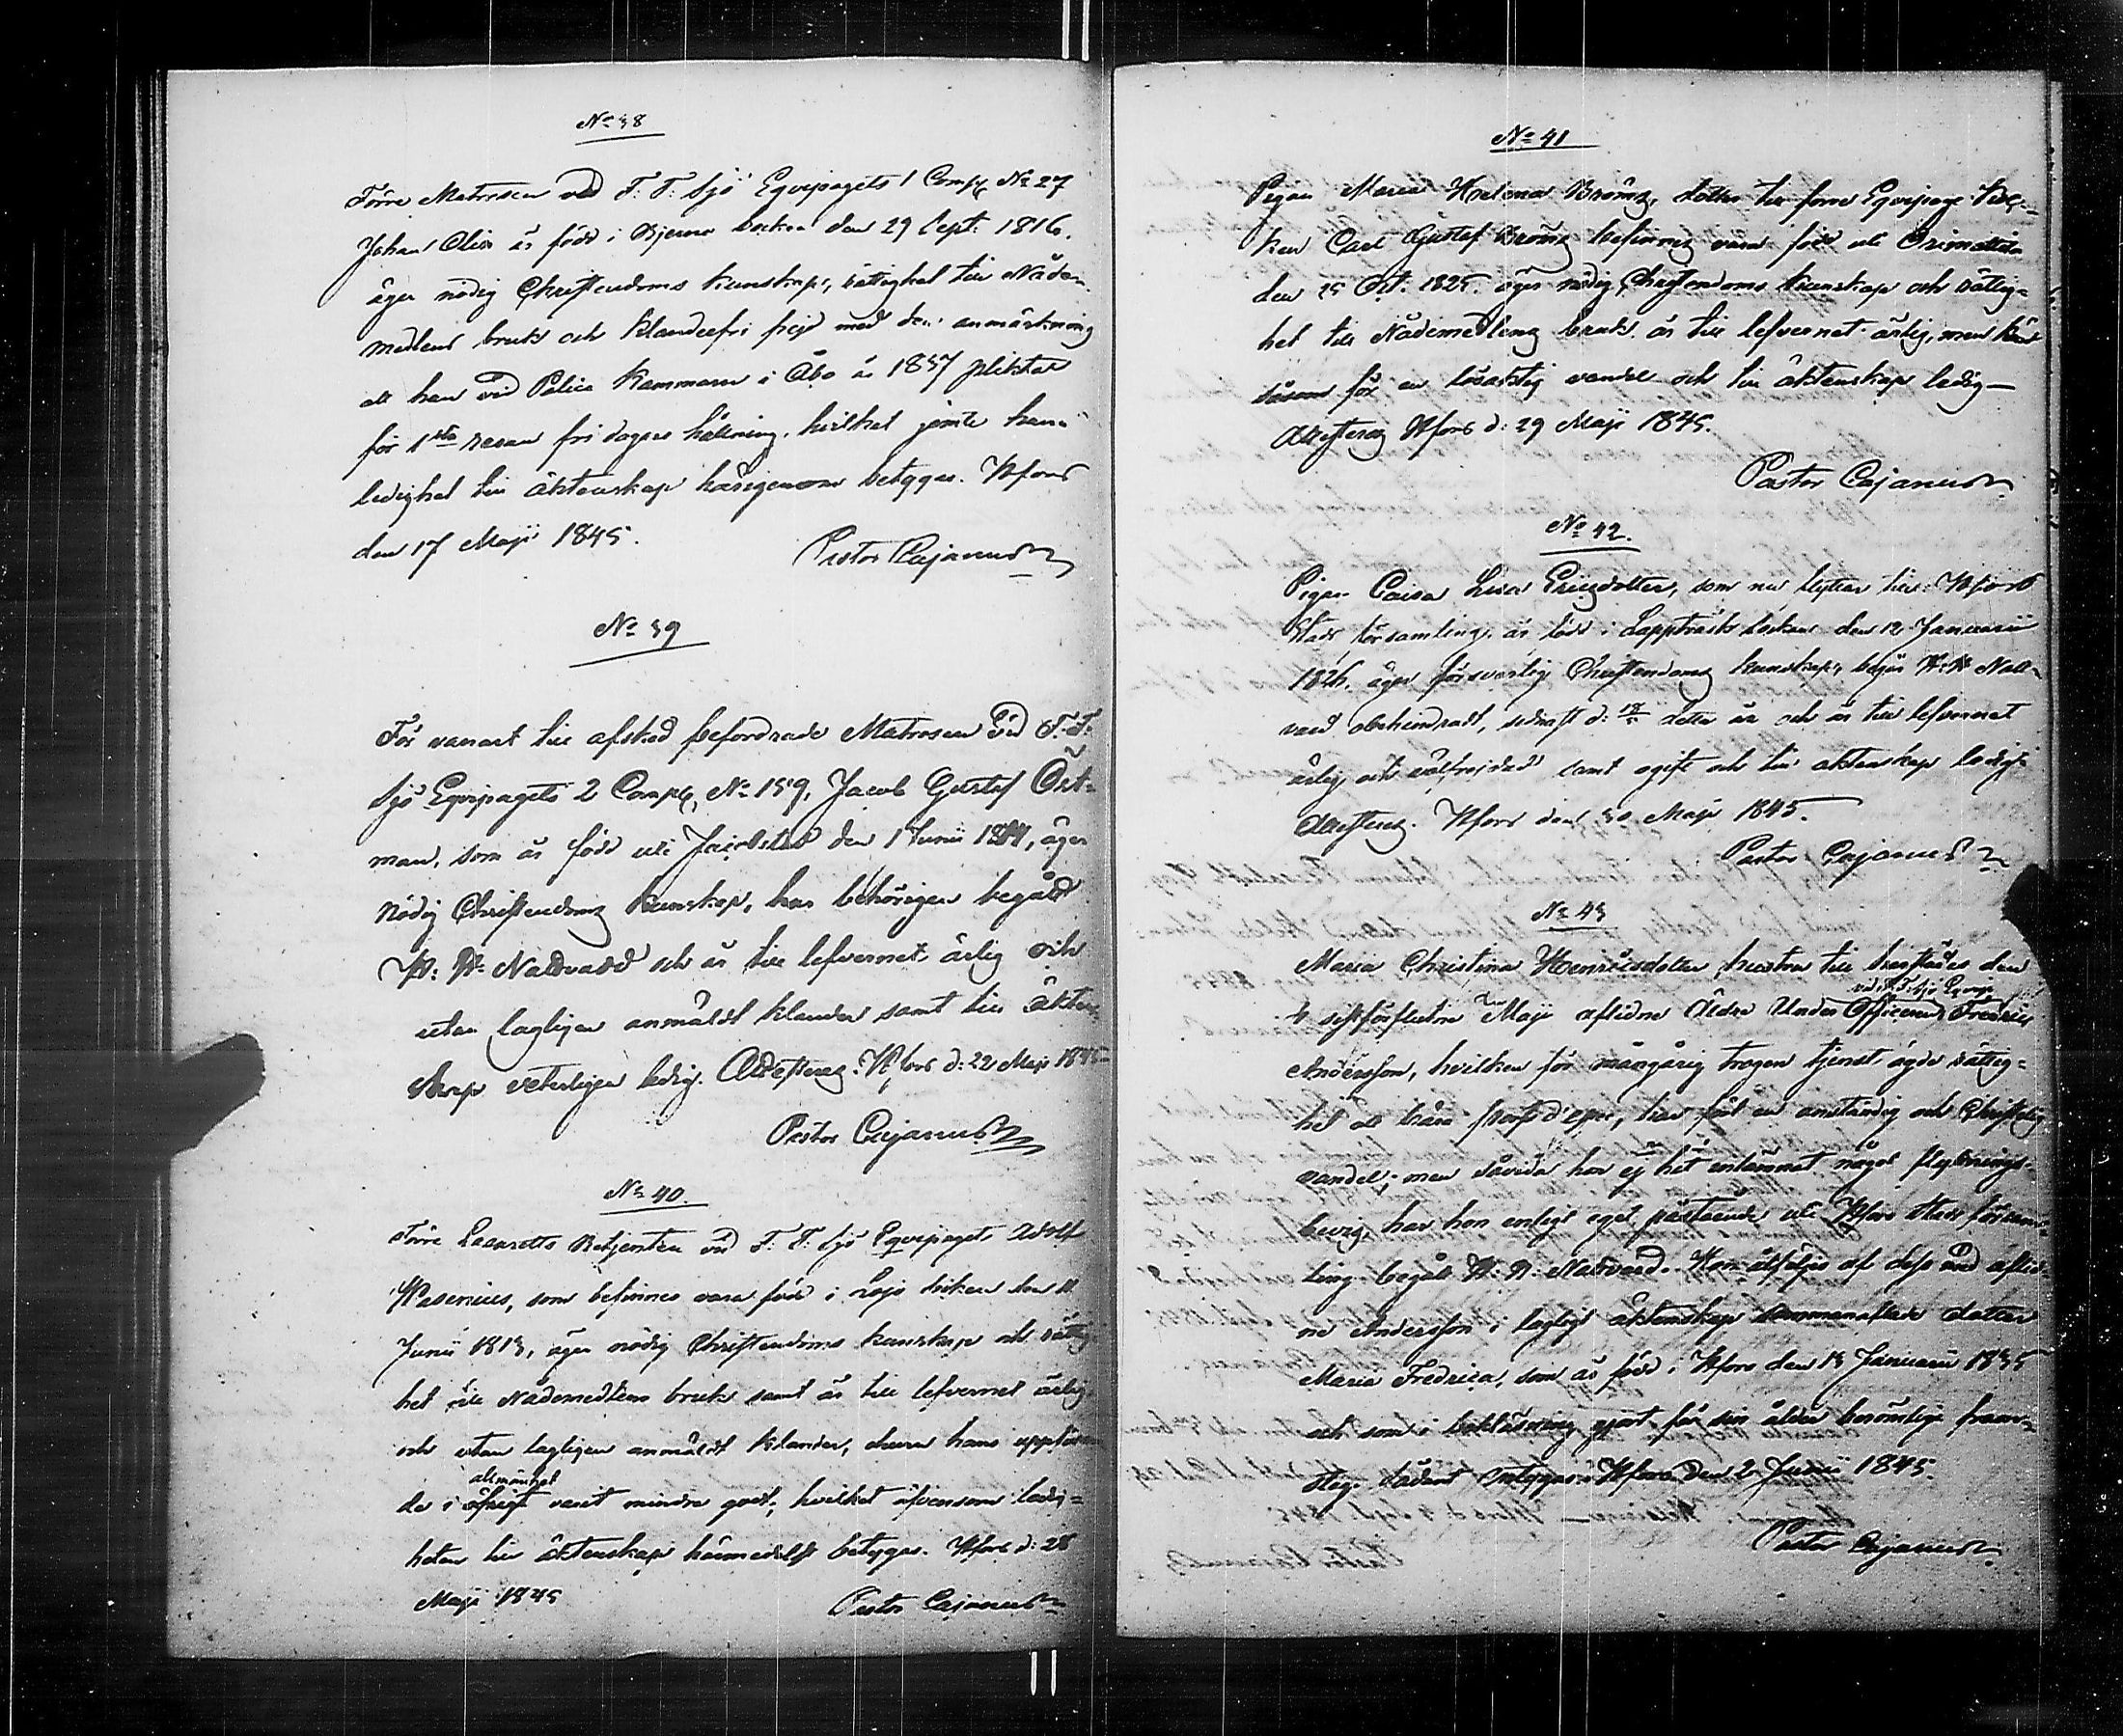 No 38
Förre Matrosen vid F. F. Sjö Eqvipagets 1 Comp. No 27
Johan Olin är född i Bjerno socken den 29 Sept. 1816.
äger nödig Christendoms kunskap, rättighet till Nåde
medlens bruk och klanderfri frejd med den anmärkning
att han vid Police Kammaren i Åbo år 1837 pliktat
för 1sta resan fri dagers hållning, hvilket jemte hans
ledighet till äktenskap härigenom betygas. Hfors
den 17 Maji 1845.
Pastor Cajanus
No 39
För vanart till afsked befordrade Matrosen vid F. F.
Sjö Eqvipagets 2 Comp. No 159, Jacob Gustaf Öst-
man, som är född uti Jacobstad den 1 Junii, äger
nödig Christendoms kunskap, har behörigen begått
H. H. Nattvard och är till lefvernet ärlig och
utan lagligen anmäldt klander samt till äkten-
skap veterligen ledig. Attesteras. Hfors d: 22 Maji 1845
Pastor Cajanus
No 40.
Förre Lazaretts Betjenten vid F. F. Sjö Eqvipaget Adolf
Wasenius, som befinnes vara född i Lojo socken den 11
Junii 1813, äger nödig Christendoms kunskap och rättig-
het till Nådemedlens bruk samt är till lefvernet ärlig
och utan lagligen anmäldt klander, churu hans uppföran-
allmänhet
de i öfrigt varit mindre godt, hvilket äfvensom ledig-
heten till äktenskap härmedelst betygas. Hfors d: 28
Maji 1845
Pastor Cajanus
No 41
Pigan Maria Helena Bröms, dotter till förre Eqvipage
Carl Gustaf Bröms befinnes vara född uti Orimattila
den 25 Oct. 1825. äger nödig Christendoms kunskap och rättig-
het till Nådemedlens bruk. är till lefvernet ärlig, men känd
såsom för en lösaktig vandel och till äktenskap ledig—
Attesteras Hfors d: 29 Maji 1845.
Pastor Cajanus
No 42.
Pigan Caisa Lisa Ericsdotter, som nu flyttar till Hfors
Stads församling, är född i Lappträsk socken den 12 Januarii
1826. äger försvarlig Christendoms kunskap, begår H. H. Natt-
vard obehindradt, sednast d: detta år och är till lefvernet
ärlig och välfrejdad samt ogift och till äktenskap ledig.
Attesteras. Hfors den 30 Maji 1845.
Pastor Cajanus
No 43
Maria Christina Henricsdotter, hustru till härstädes den
vid F. F. Sjö Eqvip.
sistförflutne Maji aflidne Äldre Under Officeren Fredric
Andersson, hvilken för mångårig trogen tjenst ägde rättig-
het att bära port d'epee, har fört en anständig och Christelig
vandel; men såvida hon ej hit inlämnat något flyttnings-
betyg, har hon enligt eget påstående uti Hfors Stads försam-
ling begått H. H. Nattvard. Hon åtföljes af dess med aflid-
ne Andersson i lagligt äktenskap sammanaflade dotter
Maria Fredrica, som är född i Hfors den 13 Januarii 1835
och som i bokläsning gjort för sin ålder berömliga fram-
steg. Sådant betygas. Hfors den 2 Junii 1845.
Pastor Cajanus